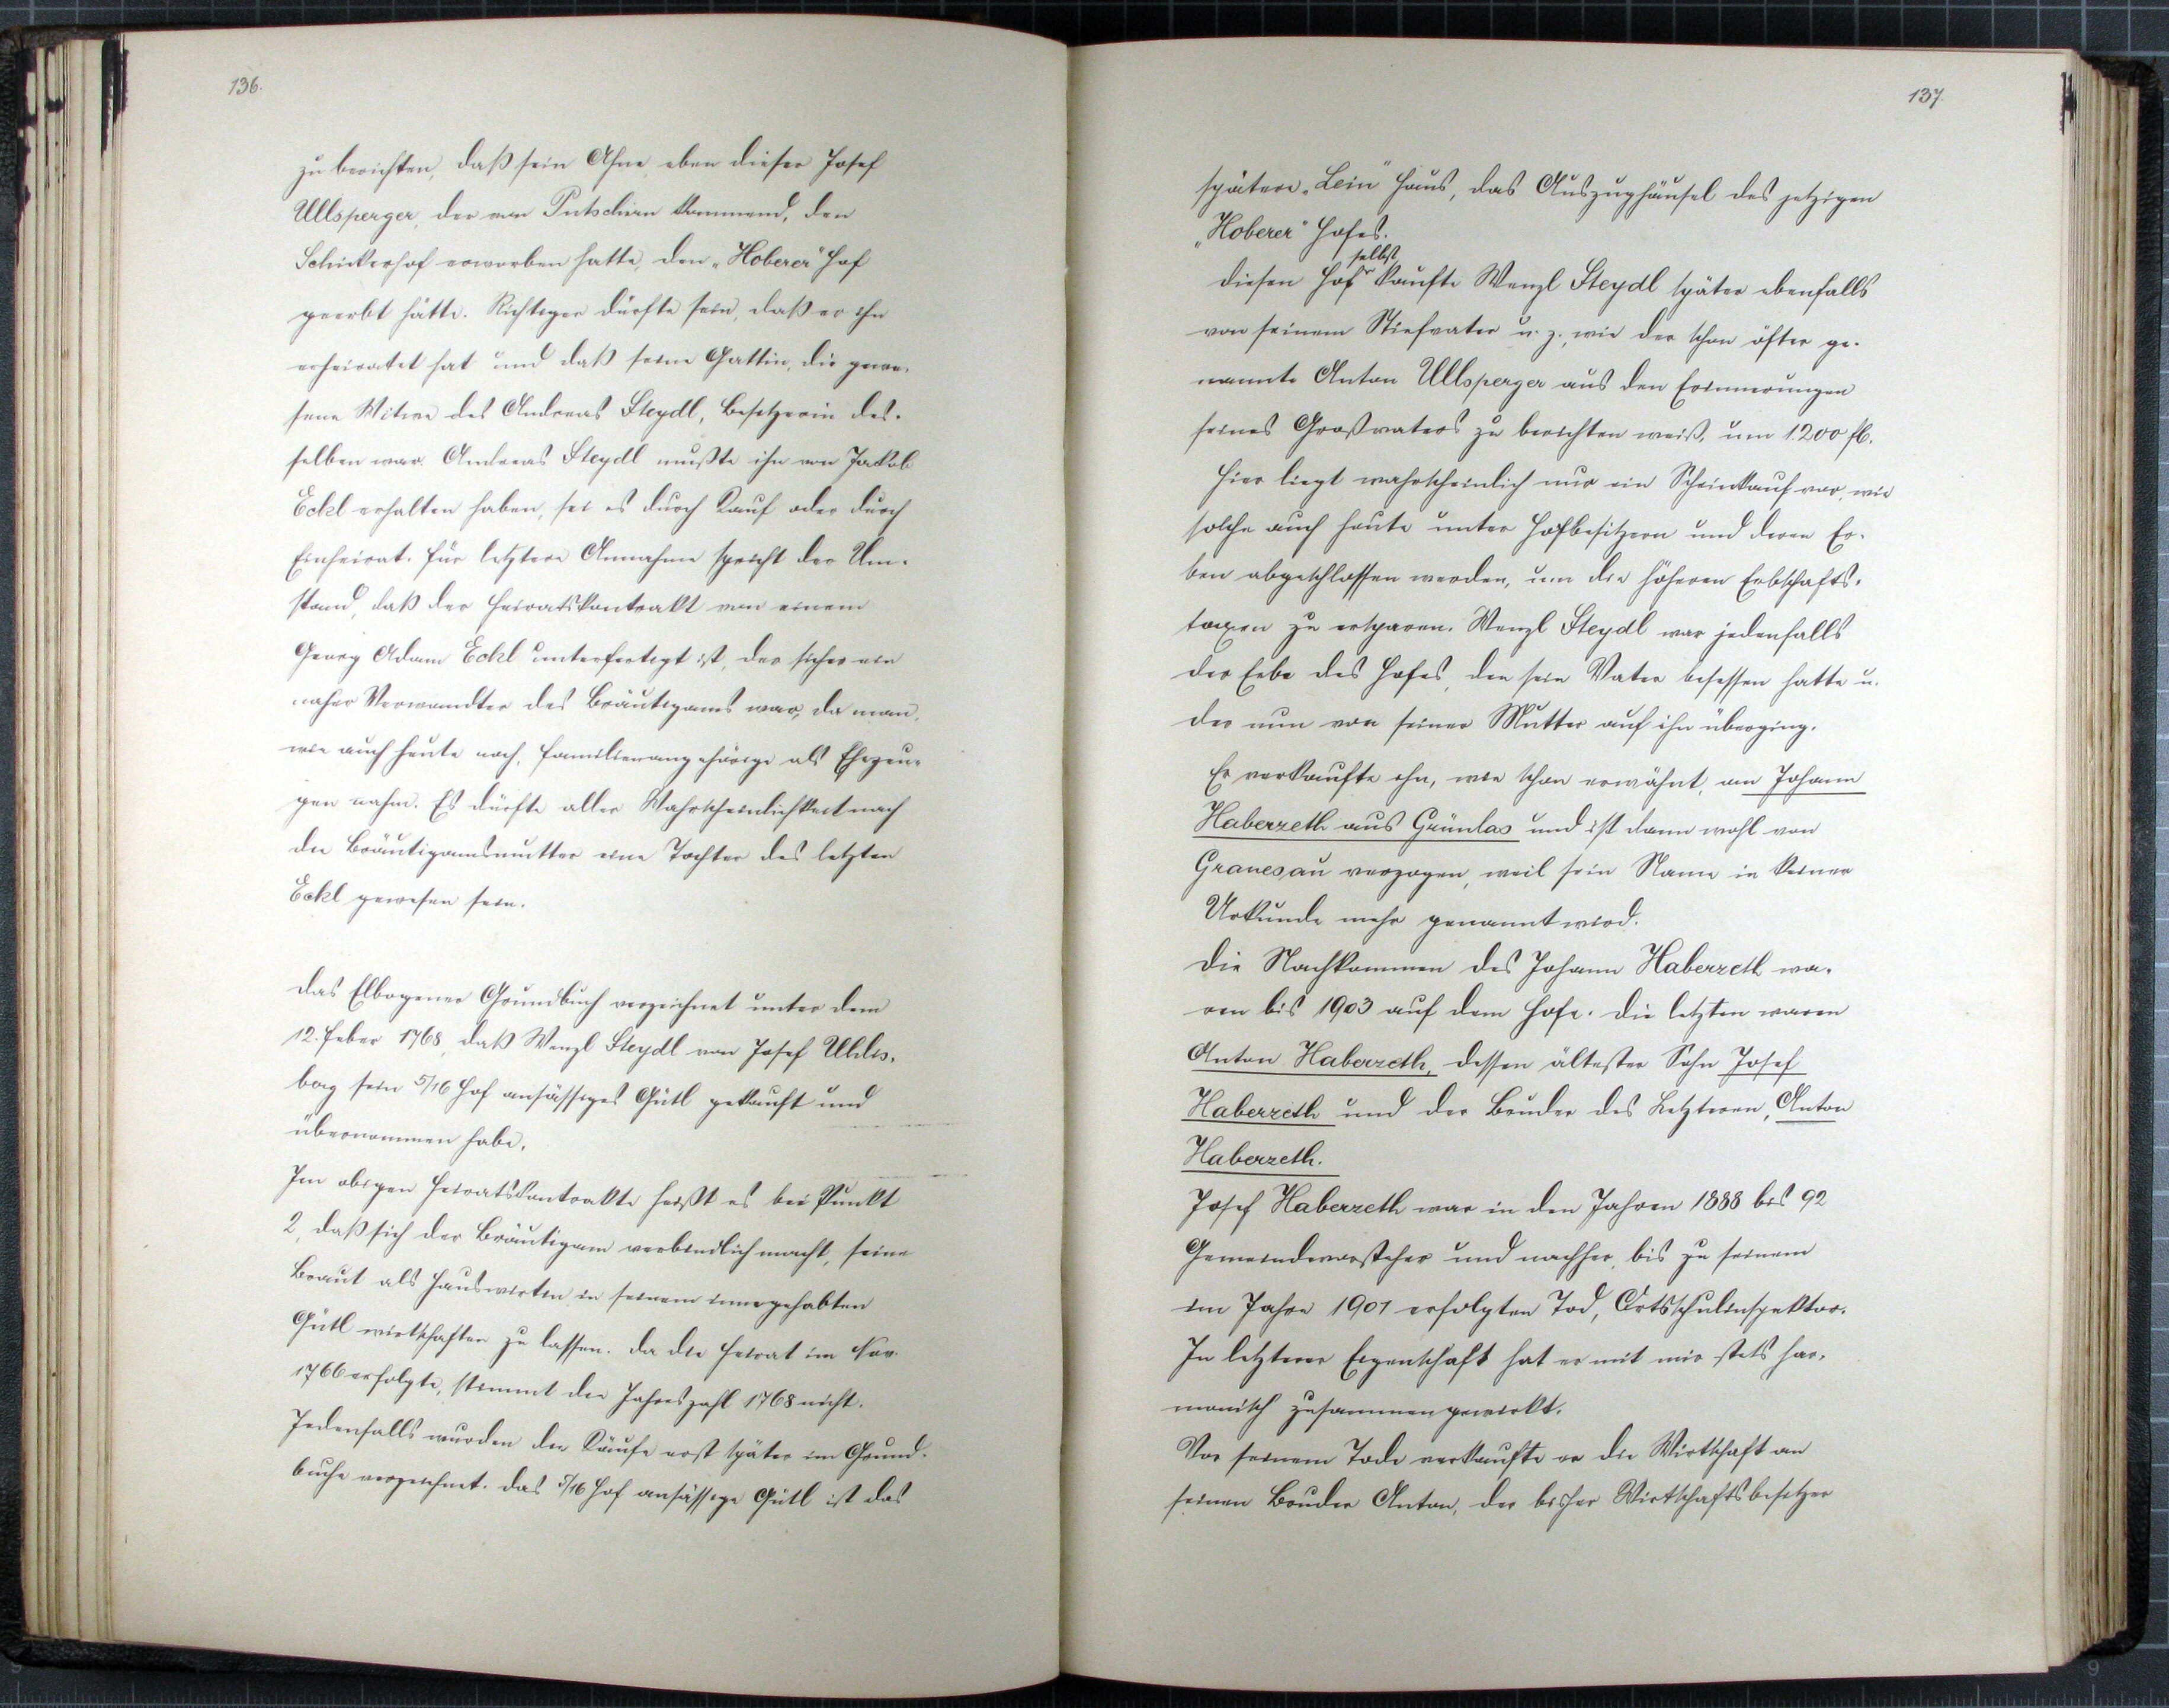 136.
zu berichten, daß sein Ahne, eben dieser Josef
Ullsperger, der von Putschirn kommend, den
Schickerhof erworben hatte, den „Hoberer" Hof
geerbt hätte. Richtiger dürfte sein, daß er ihn
erheiratet hat und daß seine Gattin, die gewe-
sene Witwe des Andreas Steydl, Besitzerin des-
selben war. Andreas Steydl mußte ihn von Jakob
Eckl erhalten haben, sei es durch Kauf oder durch
Einheirat. Für letztere Annahme spricht der Um-
stand, daß der Heiratskontrakt von einem
Georg Adam Eckl unterfertigt ist, der sicher ein
naher Verwandter des Bräutigams war, da man,
wie auch heute noch, Familienangehörige als Ehezeu-
gen nahm. Es dürfte aller Wahrscheinlichkeit nach
die Bräutigamsmutter eine Tochter des letzten
Eckl gewesen sein.
Das Elbogener Grundbuch verzeichnet unter dem
12. Feber 1768, daß Wenzl Steydl von Josef Uhls-
berg sein 5/16 Hof ansässiges Gütl gekauft und
übernommen habe.
Im obigen Heiratskontrakte heißt es bei Punkt
2, daß sich der Bräutigam verbindlich macht, seine
Braut als Hauswirtin in seinem innegehabten
Gütl wirtschaften zu lassen. Da die Heirat im Nov.
1766 erfolgte, stimmt die Jahreszahl 1768 nicht.
Jedenfalls wurden die Käufe erst später im Grund-
buche verzeichnet. Das 5/16 Hof ansässige Gütl ist das
137.
spätere „Lein" Haus, das Auszughäusel des jetzigen
„Hoberer" Hofes.
Diesen Hof selbst kaufte Wenzl Steydl später ebenfalls
von seinem Stiefvater u. z., wie der schon öfter ge-
nannte Anton Ullsperger aus den Erinnerungen
seines Großvaters zu berichten weiß, um 1200 fl.
Hier liegt wahrscheinlich nur ein Scheinkauf vor, wie
solche auch heute unter Hofbesitzern und deren Er-
ben abgeschlossen werden, um die höheren Erbschafts-
taxen zu ersparen. Wenzl Steydl war jedenfalls
der Erbe des Hofes, den sein Vater besessen hatte u.
der nun von seiner Mutter auf ihn überging.
Er verkaufte ihn, wie schon erwähnt, an Johann
Haberzeth aus Grünlas und ist dann wohl von
Granesau verzogen, weil sein Name in keiner
Urkunde mehr genannt wird.
Die Nachkommen des Johann Haberzeth wa-
ren bis 1903 auf dem Hofe. Die letzten waren
Anton Haberzeth, dessen ältester Sohn Josef
Haberzeth und der Bruder des Letzteren, Anton
Haberzeth.
Josef Haberzeth war in den Jahren 1888 bis 92
Gemeindevorsteher und nachher, bis zu seinem
im Jahre 1901 erfolgten Tod, Ortsschulinspektor.
In letzterer Eigenschaft hat er mit mir stets har-
monisch zusammengewirkt.
Vor seinem Tode verkaufte er die Wirtschaft an
seinen Bruder Anton, der bisher Wirtschaftsbesitzer
9